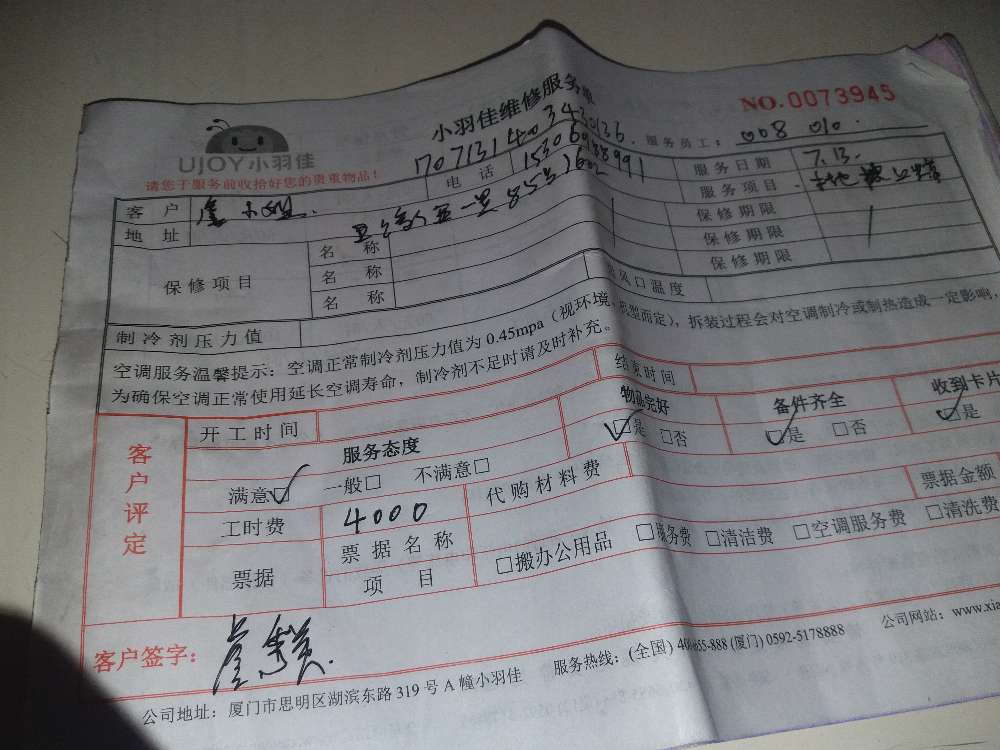 小羽佳维修服务单
NO.0073945
UJOY小羽佳
请您于服务前收拾好您的贵重物品!
服务员工: 008 010.
客户
电话 15306988991
服务日期 7.13.
地址
服务项目
保修项目 名称 保修期限
名称 保修期限
名称 保修期限
制冷剂压力值 风口温度
空调服务温馨提示:空调正常制冷剂压力值为0.45mpa(视环境、机型而定),拆装过程会对空调制冷或制热造成一定影响,
为确保空调正常使用延长空调寿命,制冷剂不足时请及时补充。
客户评定
开工时间 结束时间
服务态度 物品完好 备件齐全 收到卡片
满意☑ 一般□ 不满意□ ☑是 □否 ☑是 □否 ☑是
工时费 4000 代购材料费 票据金额
票据 票据名称
项目 □搬办公用品 □服务费 □清洁费 □空调服务费 □清洗费
客户签字:
公司地址:厦门市思明区湖滨东路319号A幢小羽佳 服务热线:(全国)400 855-888 (厦门) 0592-5178888 公司网站:www.xia